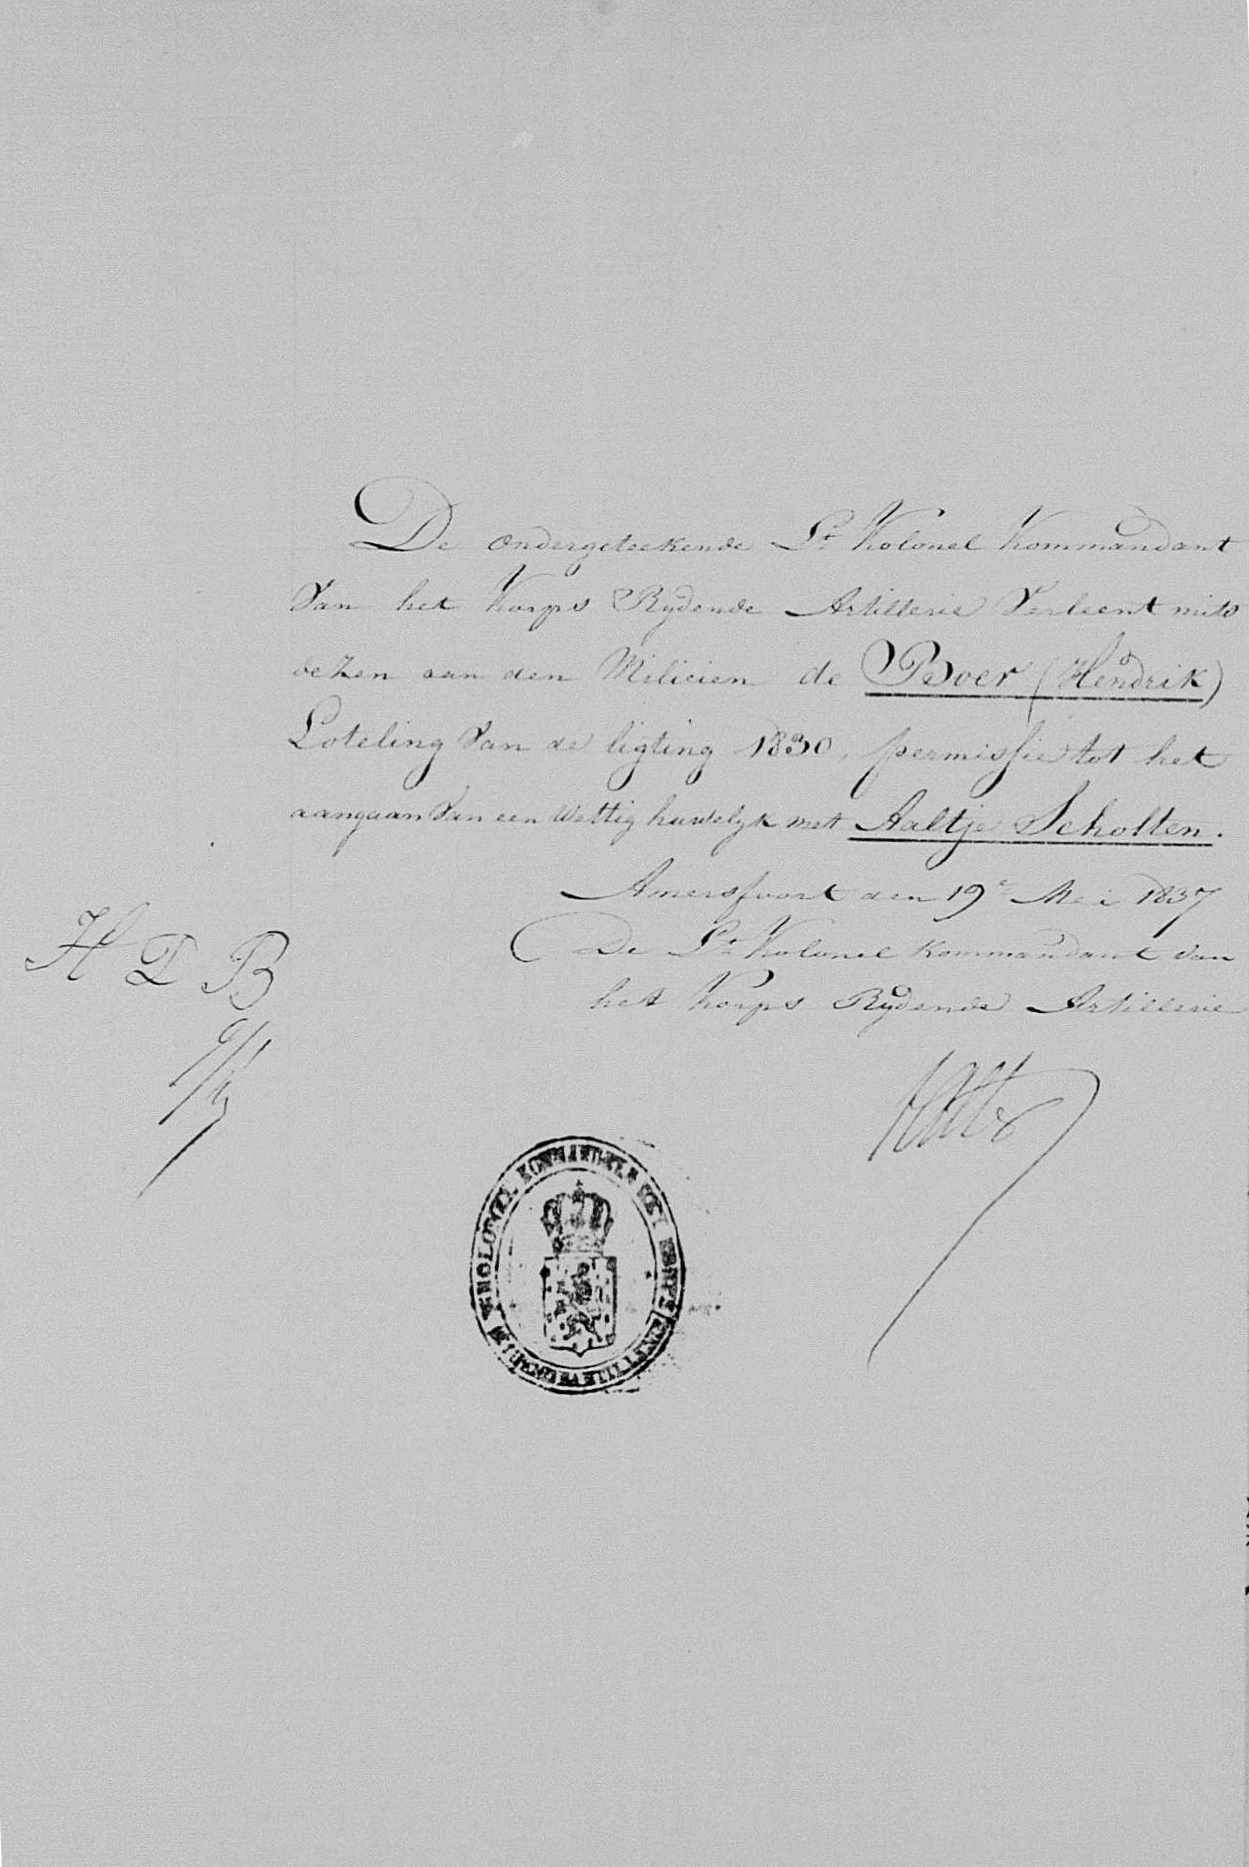 De ondergeteekende Lt. Kolonel Kommandant
Van het Korps Rydende Artillerie Verleent mits
dezen aan den Milicien de Boer (Hendrik)
Loteling Van de ligting 1830, permissie tot het
aangaan Van een Wettig huwelyk met Aaltje Scholten.
Amersfoort den 19e Mei 1837
De Lt. Kolonel Kommandant van
het Korps Rydende Artillerie
H D B